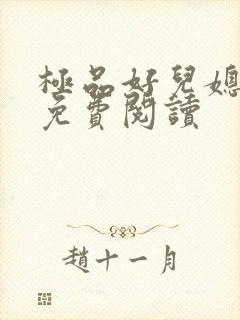 極品好兒媳
免費閱讀
趙十一月